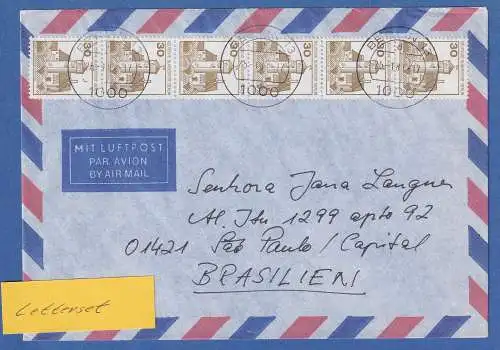 30 30 30 30 30 30
BERLIN
1000 1000 1000
MIT LUFTPOST
PAR AVION
BY AIR MAIL
Senhora Jana Langner
Al. Itu 1299 apto 92
01421 São Paulo/Capital
BRASILIEN
Letterset